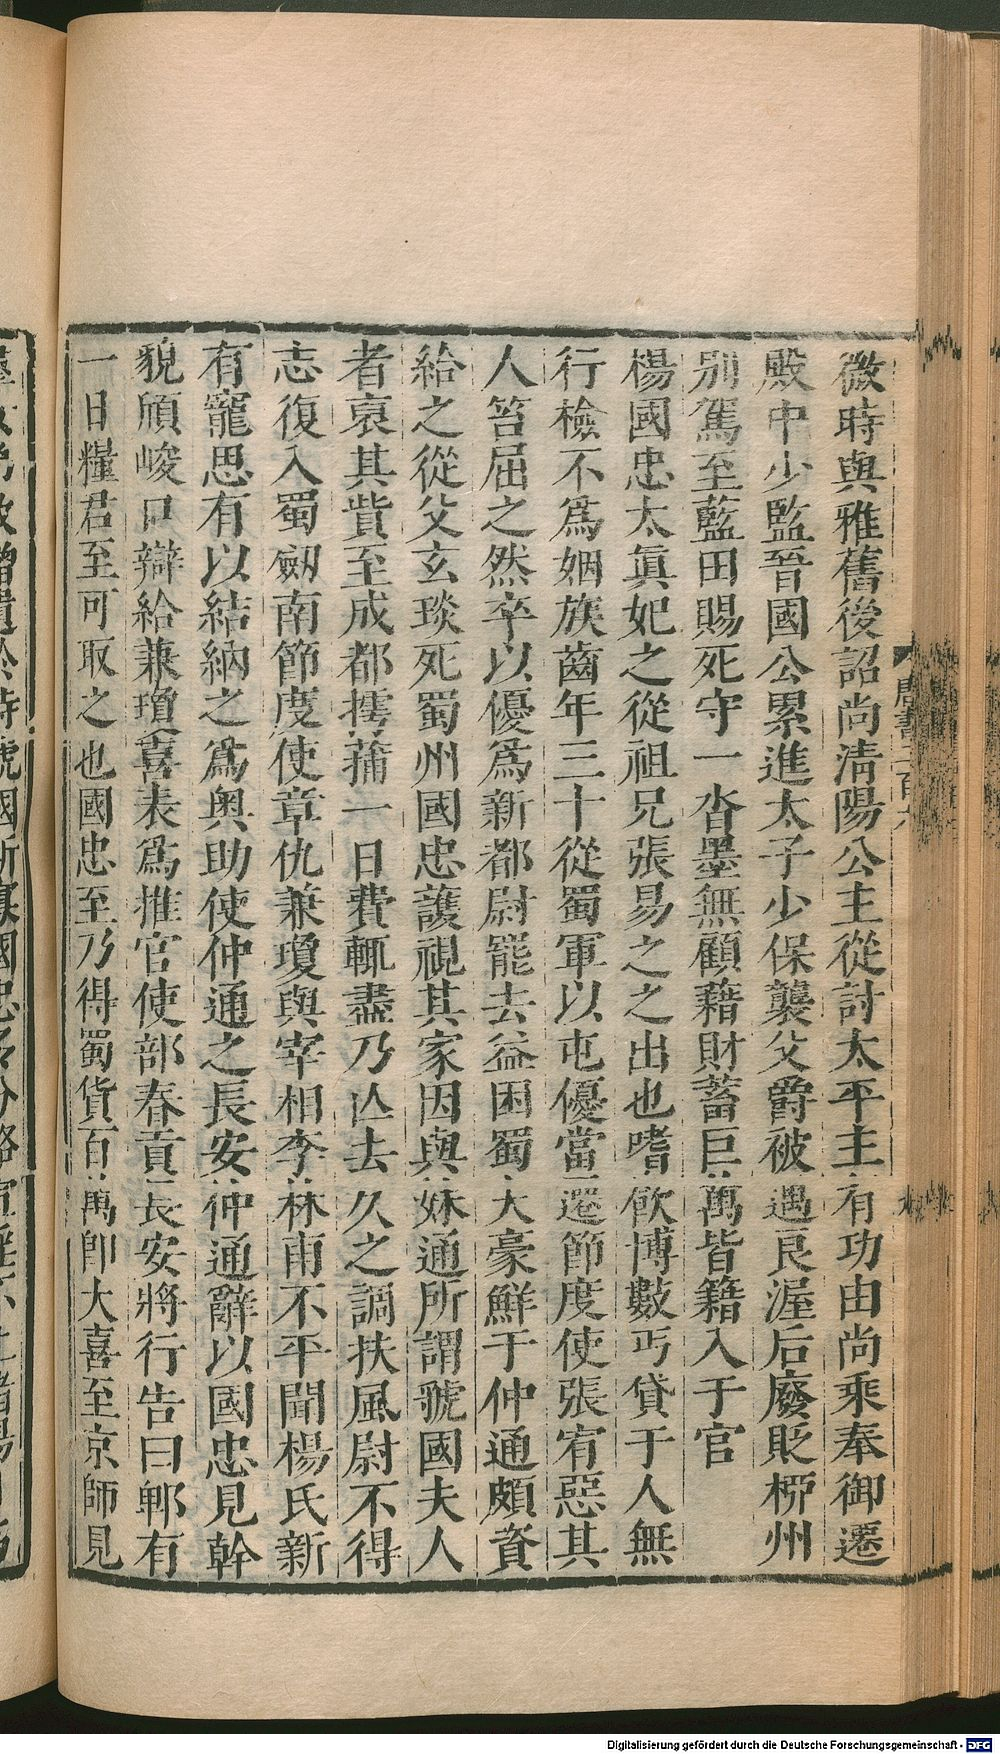 微時與雅舊後詔尚淸陽公主從討太平主有功由尚乘奉御遷
殿中少監晉國公累進太子少保襲父爵被遇良渥后廢貶栁州
別駕至藍田賜死守一沓墨無顧藉財蓄巨萬皆籍入于官
楊國忠太眞妃之從祖兄張易之之出也嗜飮博數丐貸于人無
行檢不爲姻族齒年三十從蜀軍以屯優當遷節度使張宥惡其
人笞屈之然卒以優爲新都尉罷去益困蜀大豪鮮于仲通頗資
給之從父玄琰死蜀州國忠護視其家因與妹通所謂虢國夫人
者裒其貲至成都摴蒱一日費輒盡乃亾去久之調扶風尉不得
志復入蜀劒南節度使章仇兼瓊與宰相李林甫不平聞楊氏新
有寵思有以結納之爲奧助使仲通之長安仲通辭以國忠見幹
貌頎峻口辯給兼瓊喜表爲推官使部春貢長安將行告曰郫有
一日糧君至可取之也國忠至乃得蜀貨百萬卽大喜至京師見
唐書二百六
Digitalisierung gefördert durch die Deutsche Forschungsgemeinschaft - DFG